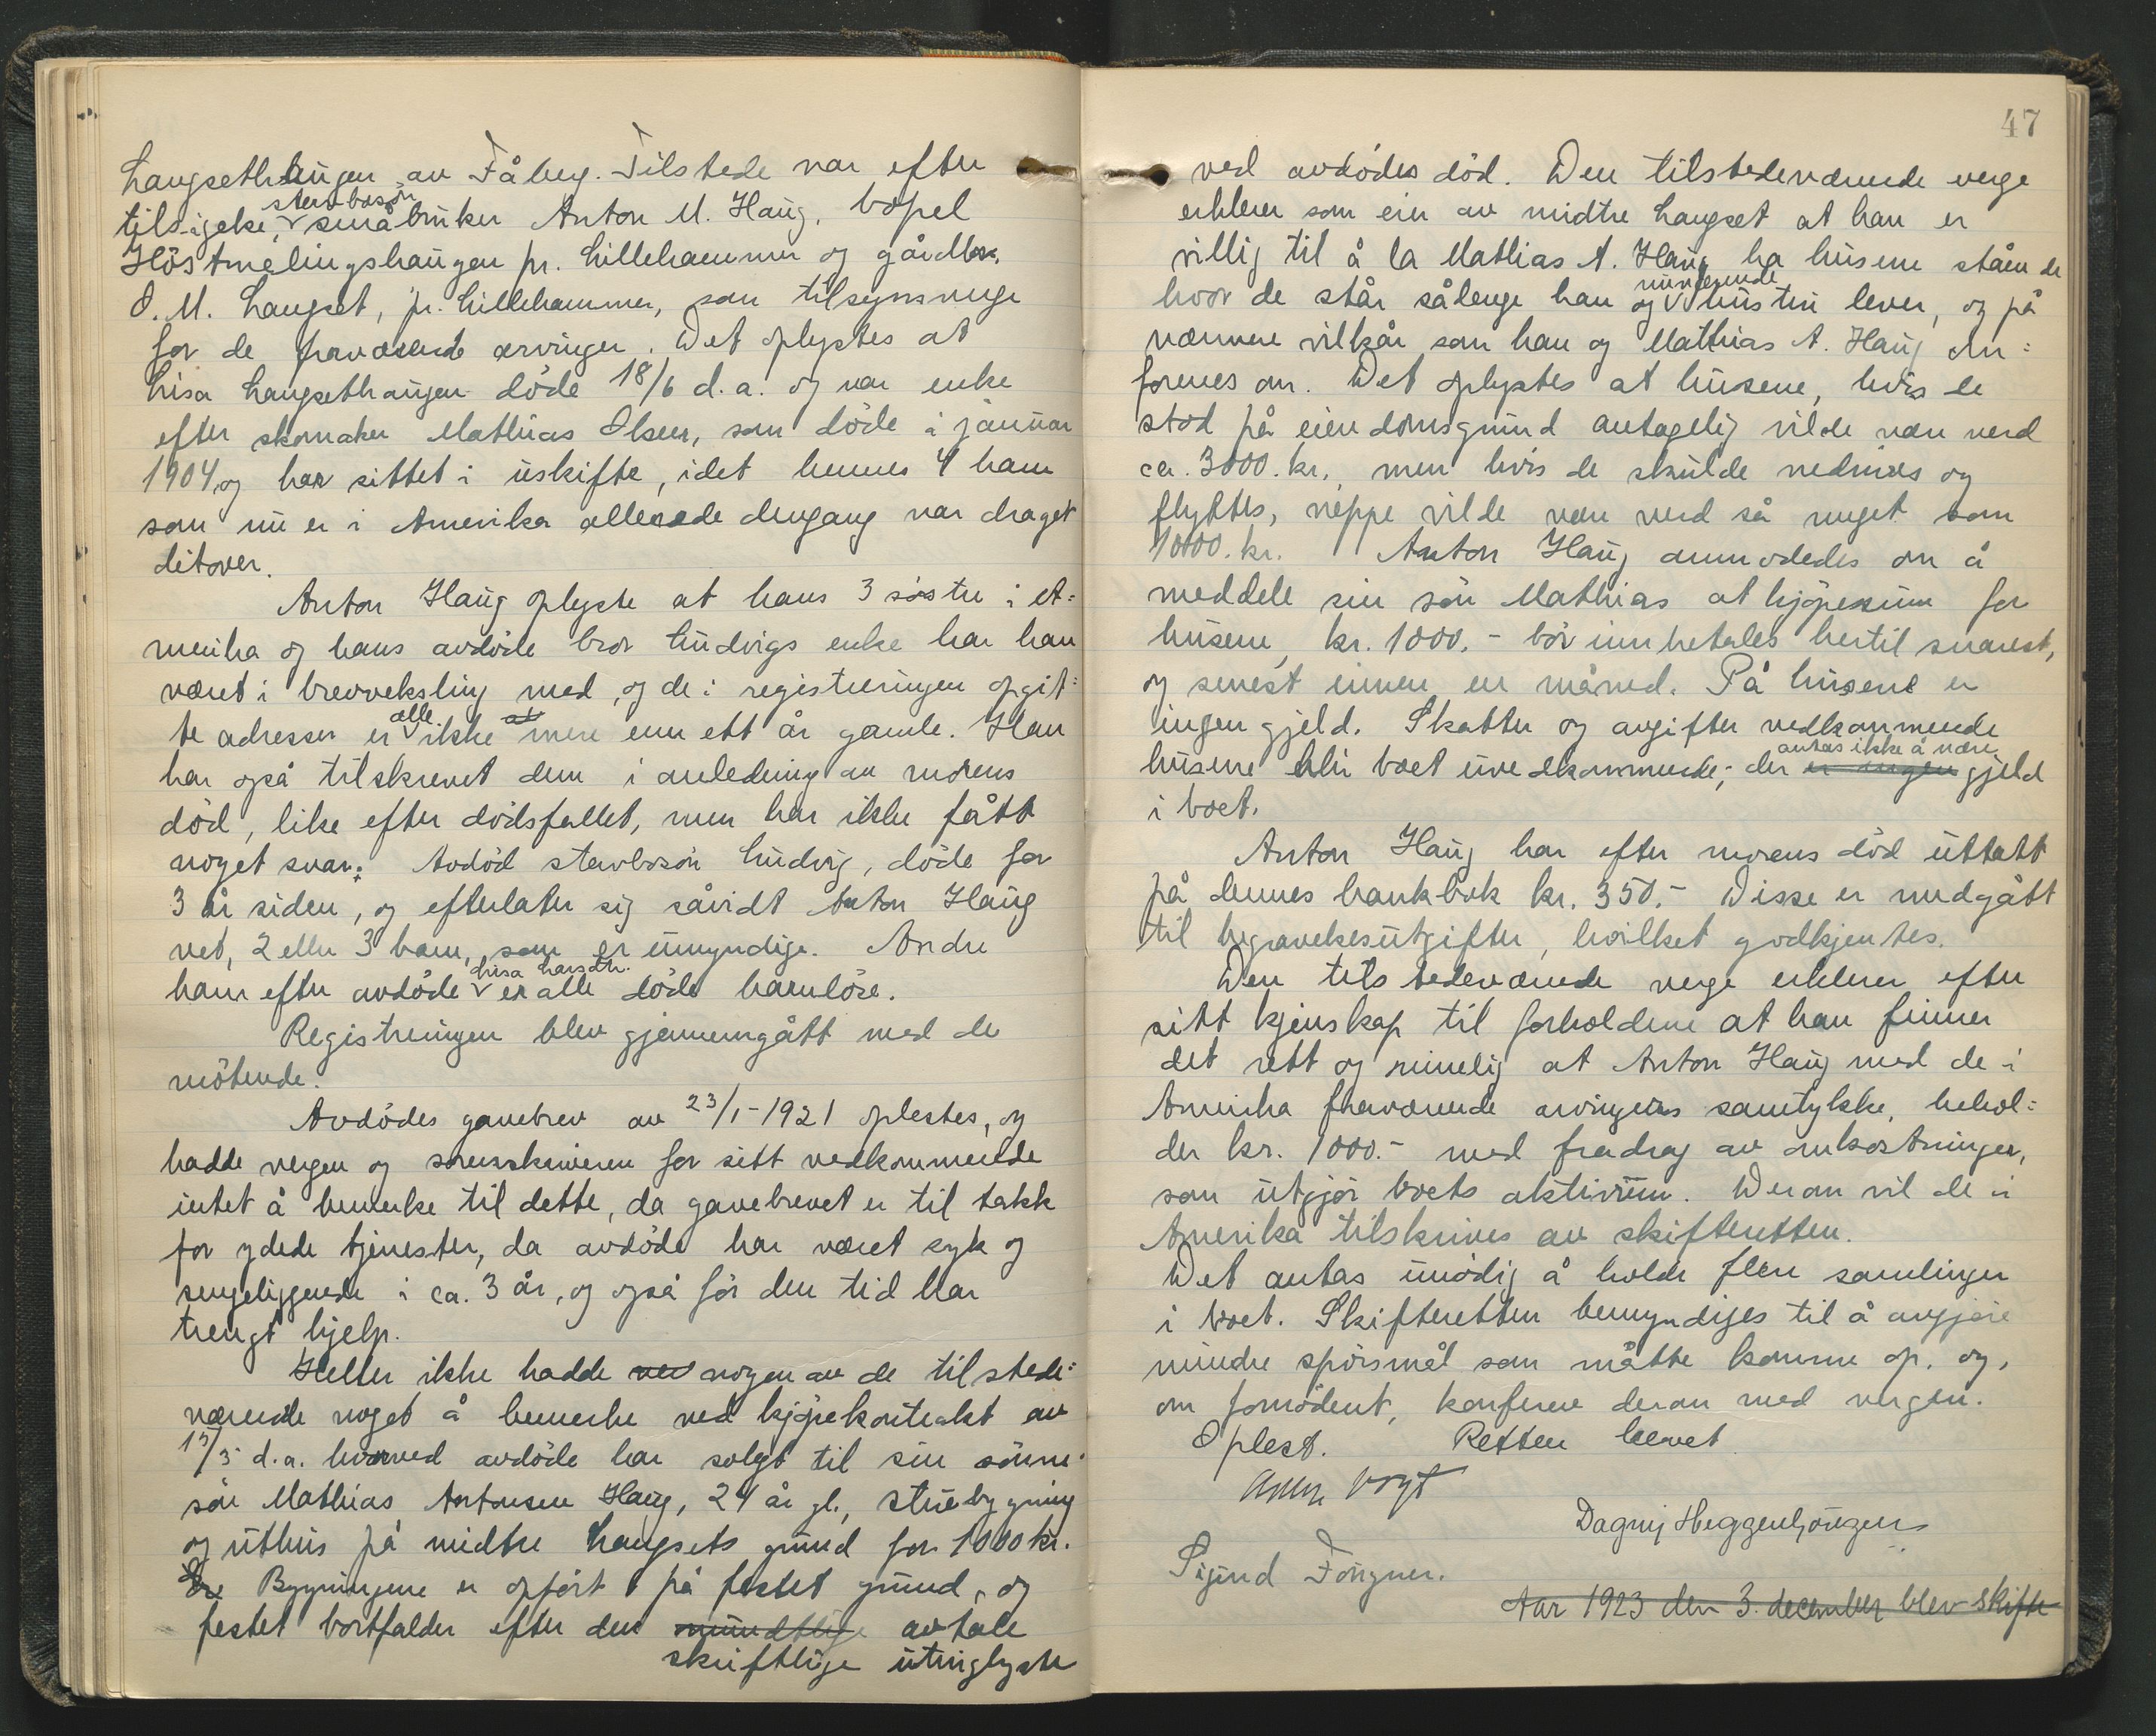 Langsethaugen av Fåberg. Tilstede var efter
tilsigelse, stervbosøn småbruker Anton M. Haug, bopel
Höstmelingshaugen pr. Lillehammer og gårdbr.
O. M. Langset, pr. Lillehammer, som tilsynsverge
for de fraværende arvinger. Det oplystes at
Lisa Langsethaugen döde 18/6 d.a. og var enke
efter skomaker Mathias Olsen, som döde i januar
1904, og har sittet i uskifte, idet hennes 4 barn
som nu er i Amerika allerede dengang var draget
ditover.
Anton Haug oplyste at hans 3 söstre i A=
merika og hans avdöde bror Ludvigs enke har han
været i brevveksling med, og de i registreringen opgit=
te adresser er alle ikke at mere enn ett år gamle. Han
har også tilskrevet dem i anledning av morens
död, like efter dödsfallet, men har ikke fått
noget svar. Avdöd stervbosön Ludvig, döde for
3 år siden, og efterlater sig såvidt Anton Haug
vet, 2 eller 3 barn, som er umyndige. Andre
barn efter avdöde Lisa Larsdtr. er alle döde barnlöse.
Registreringen blev gjennemgått med de
mötende.
Avdödes gavebrev av 23/1-1921 oplestes, og
hadde vergen og sorenskriveren for sitt vedkommende
intet å bemerke til dette, da gavebrevet er til takk
for ydede tjenester, da avdöde har været syk og
sengeliggende i ca. 3 år, og også för den tid har
trengt hjelp.
Heller ikke hadde ver nogen av de tilstede=
værende noget å bemerke ved kjöpekontrakt av
/3 d.a. hvorved avdöde har solgt til sin sönne=
sön Mathias Antonsen Haug, 24 år gl., stuebygning
og uthus på midtre Langsets grund for 1000 kr.
De Bygningene er opfört på festet grund, og
festet bortfalder efter den mundtlige avtale
skriftlige utinglyste
47
ved avdödes död. Den tilstedeværende verge
erklerer som eier av midtre Langset at han er
villig til å la Mathias A. Haug ha husene stående
hvor de står sålenge han og nuværende hustru lever, og på
nærmere vilkår som han og Mathias A. Haug om=
forenes om. Det oplystes at husene, hvis de
stod på eiendomsgrund antagelig vilde være verd
ca. 3000. kr., men hvis de skulde nedrives og
flyttes, neppe vilde være verd så meget som
1000. kr. Anton Haug anmodedes om å
meddele sin sön Mathias at kjöpesum for
husene, kr. 1000.- bör innbetales hertil snarest,
og senest innen en måned. På husene er
ingen gjeld. Skatter og avgifter vedkommende
husene blir boet uvedkommende; der er ingen antas ikke å være gjeld
i boet.
Anton Haug har efter morens död uttatt
på dennes bankbok kr. 350.- Disse er medgått
til begravelsesutgifter, hvilket godkjentes.
Den tilstedeværende verge erklerer efter
sitt kjenskap til forholdene at han finner
det rett og rimelig at Anton Haug med de i
Amerika fraværende arvingers samtykke, behol=
der kr. 1000.- med fradrag av omkostninger,
som utgjör boets aktivum. Derom vil de i
Amerika tilskrives av skifteretten.
Det antas unödig å holde flere samlinger
i boet. Skifteretten bemyndiges til å avgjöre
mindre spörsmål som måtte komme op, og,
om fornödent, konferere derom med vergen.
Oplest. Retten hevet
Vogt
Dagny Heggenhougen
Sigurd Fougner.
Aar 1923 den 3. december blev skifte